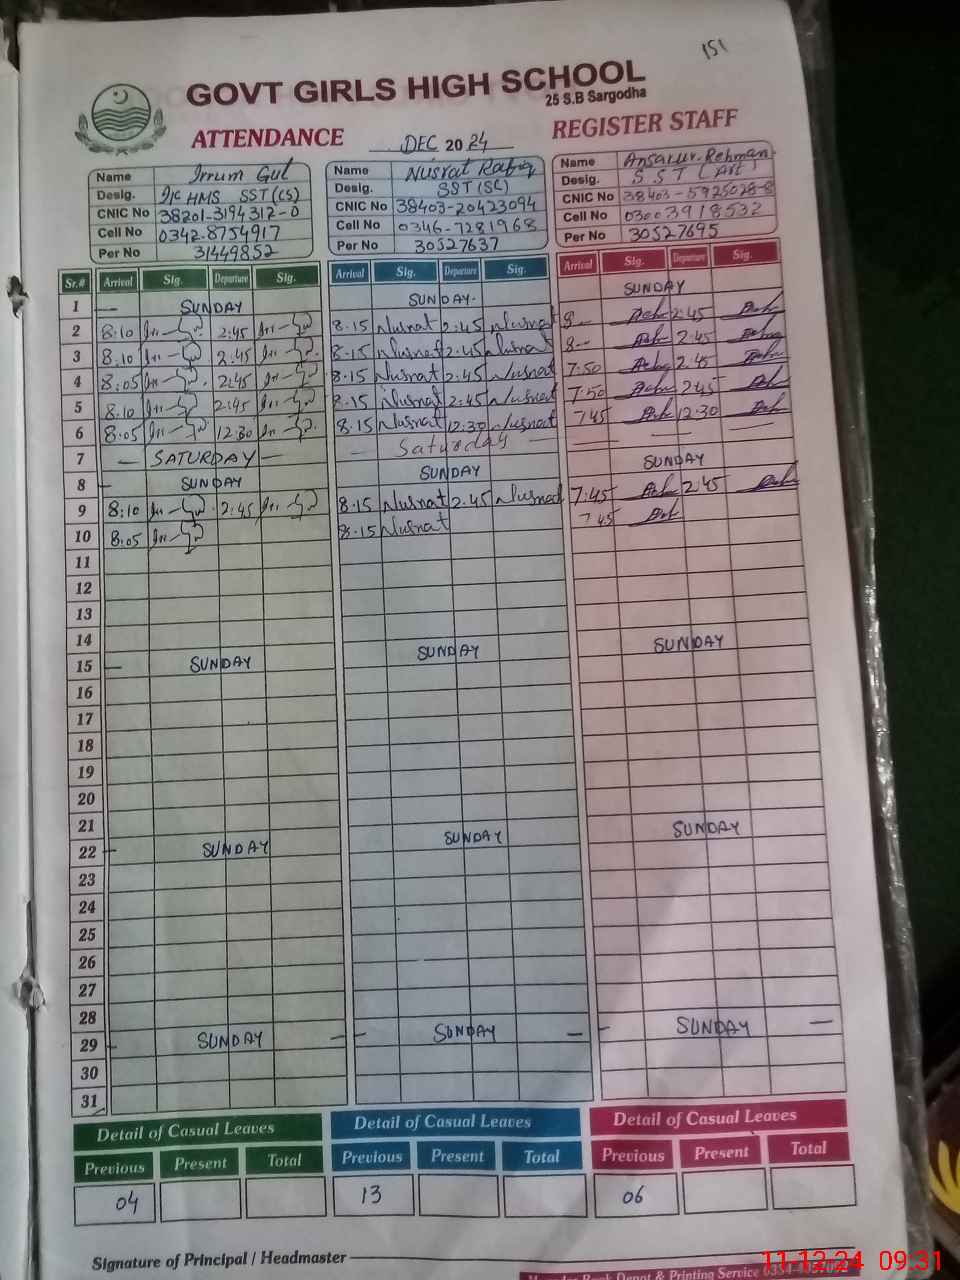 151
GOVT GIRLS HIGH SCHOOL
25 S.B Sargodha
ATTENDANCE DEC 2024 REGISTER STAFF
Name Irrum Gul Name Nusrat Rabia Name Ansar-ur-Rehman
Desig. I/c HMS SST(CS) Desig. SST(SC) Desig. SST (Art)
CNIC No 38201-3194312-0 CNIC No 38403-20423094 CNIC No 38403-5925028-8
Cell No 0342-8754917 Cell No 0346-7281968 Cell No 03003918532
Per No 31449852 Per No 30527637 Per No 30527695
Sr.# Arrival Sig. Departure Sig. Arrival Sig. Departure Sig. Arrival Sig. Departure Sig.
1 — SUNDAY SUNDAY. SUNDAY
2 8:10 2:45 8.15 Nusrat 2:45 Nusrat 8— 2:45
3 8:10 2:45 8.15 Nusrat 2.45 Nusrat 8-- 2.45
4 8:05 2:45 8.15 Nusrat 2.45 Nusrat 7:50 2.45
5 8:10 2:45 8.15 Nusrat 2.45 Nusrat 7:50 2:45
6 8:05 12:30 8.15 Nusrat 12:30 Nusrat 745 12:30
7 — SATURDAY — — Saturday —
8 — SUNDAY SUNDAY SUNDAY
9 8:10 2:45 8.15 Nusrat 2.45 Nusrat 7:45 2:45
10 8:05 8.15 Nusrat 745
11
12
13
14
15 — SUNDAY SUNDAY SUNDAY
16
17
18
19
20
21
22 — SUNDAY SUNDAY SUNDAY
23
24
25
26
27
28
29 — SUNDAY — — SUNDAY — — SUNDAY —
30
31
Detail of Casual Leaves Detail of Casual Leaves Detail of Casual Leaves
Previous Present Total Previous Present Total Previous Present Total
04 13 06
Signature of Principal / Headmaster
Book Depot & Printing Service
11.12.24 09:31